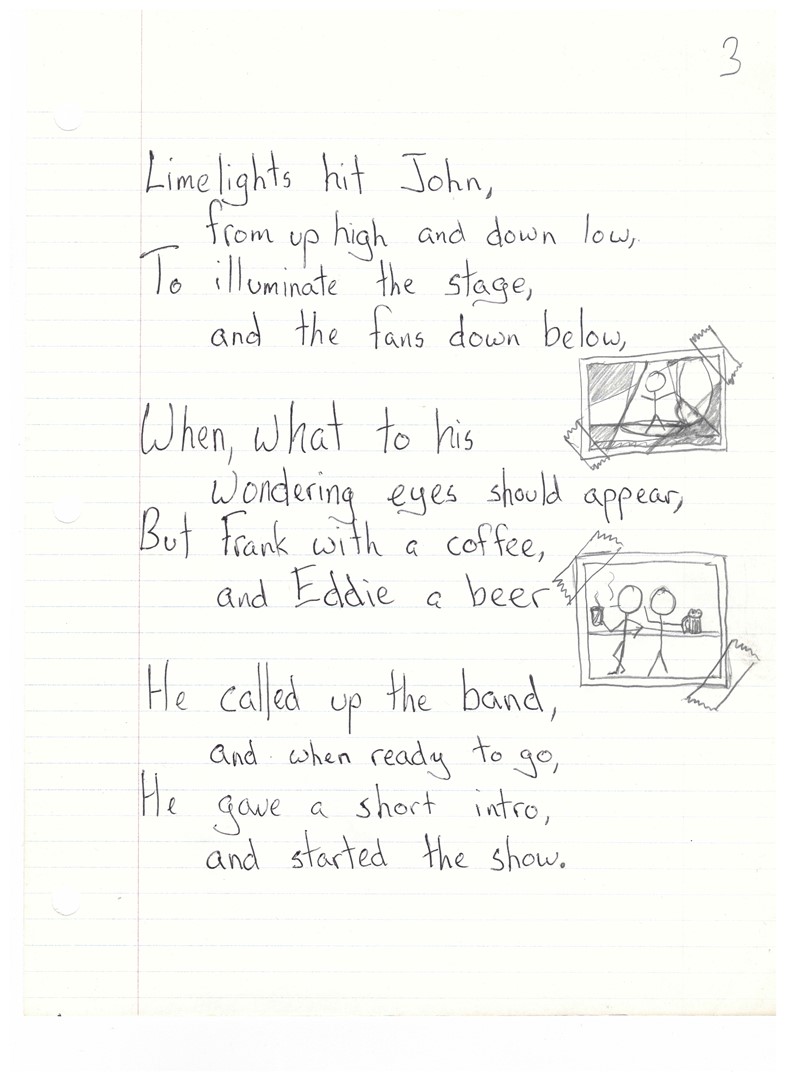 3
Limelights hit John,
from up high and down low,
To illuminate the stage,
and the fans down below,
When, what to his
wondering eyes should appear,
But Frank with a coffee,
and Eddie a beer
He called up the band,
and when ready to go,
He gave a short intro,
and started the show.